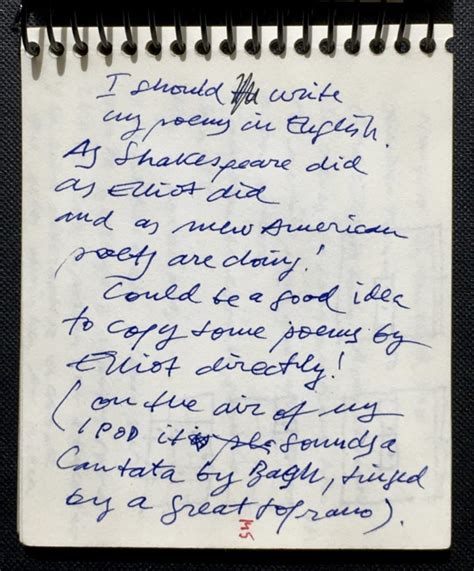 I should write
my poems in English.
As Shakespeare did
as Elliot did
and as new American
poets are doing!
Could be a good idea
to copy some poems by
Elliot directly!
(on the air of my
IPOD it is sounds a
Cantata by Bagh, singed
by a great soprano).
MS